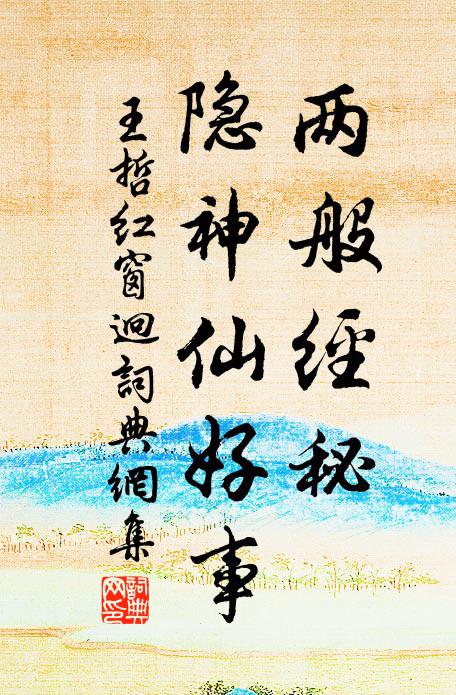 两般經秘
隐神仙好事
王哲红窗迥詞典網集
詞典网印